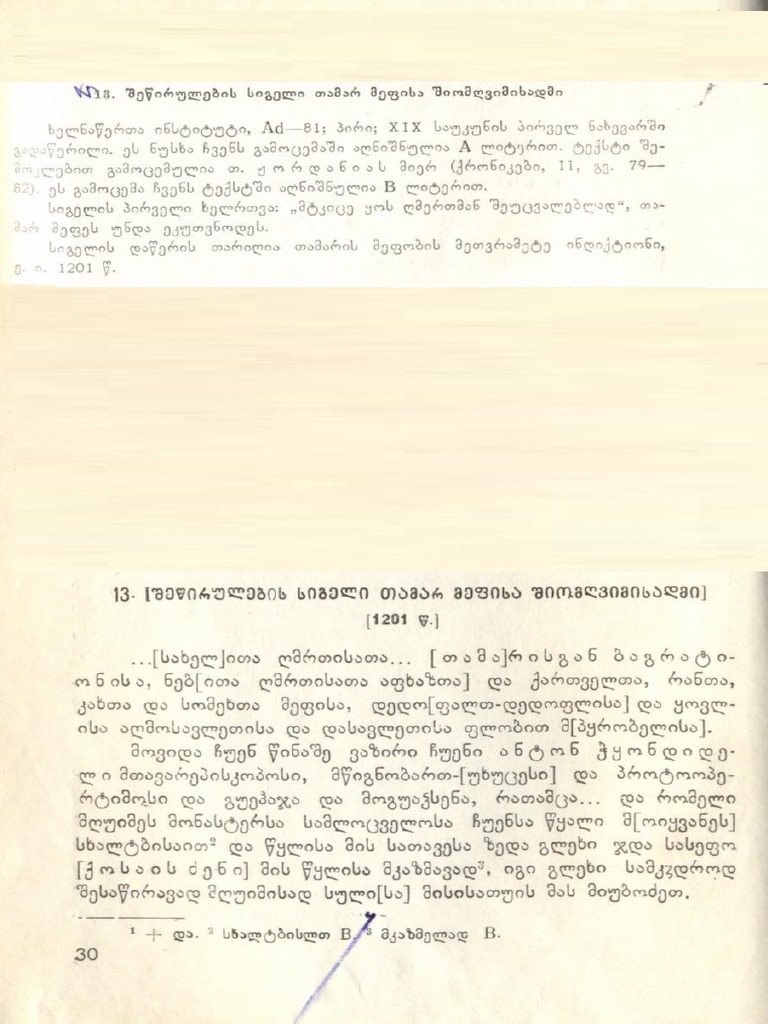 13. შეწირულების სიგელი თამარ მეფისა შიომღვიმისადმი
ხელნაწერთა ინსტიტუტი, Ad—81; პირი; XIX საუკუნის პირველ ნახევარში
გადაწერილი. ეს ნუსხა ჩვენს გამოცემაში აღნიშნულია A ლიტერით. ტექსტი შე-
მოკლებით გამოცემულია თ. ჟორდანიას მიერ (ქრონიკები, II, გვ. 79—
82). ეს გამოცემა ჩვენს ტექსტში აღნიშნულია B ლიტერით.
სიგელის პირველი ხელრთვა: „მტკიცე ყოს ღმერთმან შეუცვალებლად“, თა-
მარ მეფეს უნდა ეკუთვნოდეს.
სიგელის დაწერის თარიღია თამარის მეფობის მეთვრამეტე ინდიქტიონი,
ე. ი. 1201 წ.
13. [შეწირულების სიგელი თამარ მეფისა შიომღვიმისადმი]
[1201 წ.]
...[სახელ]ითა ღმრთისათა... [თამა]რისგან ბაგრატი-
ონისა, ნებ[ითა ღმრთისათა აფხაზთა] და ქართველთა, რანთა,
კახთა და სომეხთა მეფისა, დედო[ფალთ-დედოფლისა] და ყოვლ-
ისა აღმოსავლეთისა და დასავლეთისა ფლობით მ[პყრობელისა].
მოვიდა ჩუენ წინაშე ვაზირი ჩუენი ანტონ ჭყონდიდე-
ლი მთავარეპისკოპოსი, მწიგნობართ-[უხუცესი] და პროტოოპე-
რტიმოსი და გუეჰაჯა და მოგუაჴსენა, რათამცა... და რომელი
მღუიმეს მონასტერსა სამლოცველოსა ჩუენსა წყალი მ[ოიყვანეს]
სხალტბისაით² და წყლისა მის სათავესა ზედა გლეხი ჯდა სასეფო
[ქოსაის ძენი] მის წყლისა მკაზმავად³, იგი გლეხი სამკჳდროდ
შესაწირავად მღუიმისად სული[სა] მისისათუის მას მიუბოძეთ.
¹ + და. ² სხალტბისლთ B. ³ მკაზმელად B.
30